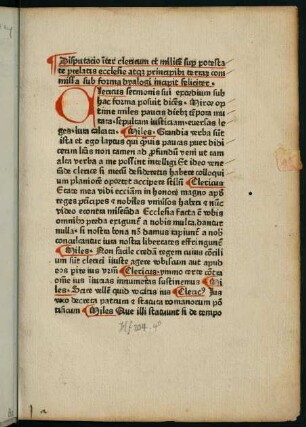 Disputacio iter clericum et militē sup potesta
te prelatis ecclesie atqз principibs terraȝ com
missa sub forma dyalogi incipit feliciter.
Clericus sermonis sui exordium sub
hac forma posuit dicēs. Miror op
time miles paucis diebs tēpora mu
tata. sepultam iusticiam. euersas le
ges. iura calcata. Miles. Grandia verba sūt
ista et ego laycus qui licet puer paucas didi
cerim lrās non tamen ad profundū veni ut tam
alta verba a me possint intelligi Et ideo vene
rāde clerice si meū desideretis habere colloqui
um planiore oportet accipere stilū Clericus
Etate mea vidi eccliam in honore magno apd
reges prīcipes et nobiles vniuersos haberi et nūc
video econtra miserādā Ecclesia facta ē vobis
omnibs preda exigunt a nobis multa dantur
nulla. si nostra bona nō damus rapiunt a nobis
conculcantur iura nostra libertates effringunt
Miles. Non facile credā regem cuius cōcili
um sūt clerici iniuste agere vobiscum aut apud
eos pire ius vrm Clericus. ymmo certe cōtra
oīne ius iniurias innumeras sustinemus Mi
les. Scire vellē quid vocatis ius Cleric9 Jus
voco decreta patrum et statuta romanorum pō
tificum Miles Que illi statuunt si de tempo